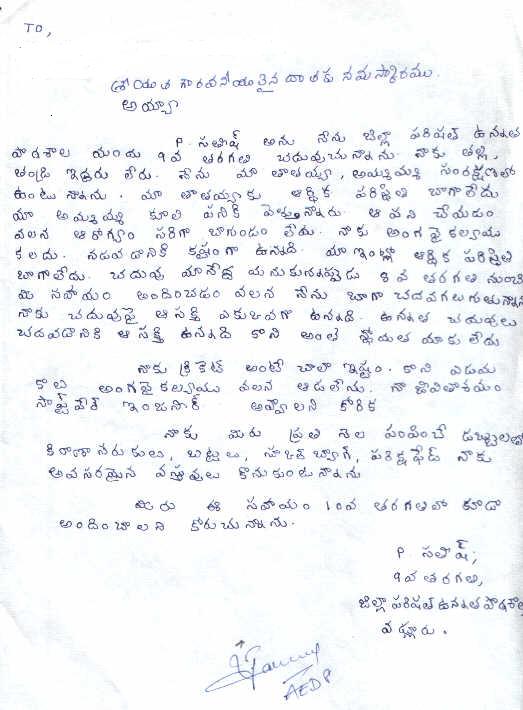 TO,
శ్రీయుత గౌరవనీయమైన దాతకు నమస్కారము.
అయ్యా
P. సతీష్ అను నేను జిల్లా పరిషత్ ఉన్నత
పాఠశాల యందు 9వ తరగతి చదువుచున్నాను. నాకు తల్లి,
తండ్రి ఇద్దరు లేరు. నేను మా తాతయ్యా, అమ్మమ్మ సంరక్షణలో
ఉంటున్నాను. మా తాతయ్యాకు ఆర్థిక పరిస్థితి బాగాలేదు
మా అమ్మమ్మ కూలి పనికి వెళ్తున్నారు. ఆ పని చేయడం
వలన ఆరోగ్యం సరిగా బాగుండం లేదు. నాకు అంగవైకల్యము
కలదు. నడవడానికి కష్టంగా ఉన్నది. మా ఇంట్లో ఆర్థిక పరిస్థితి
బాగాలేదు. చదువు మానేద్ద మనుకున్నప్పుడు 8వ తరగతి నుంచి
మీ సహాయం అందించడం వలన నేను బాగా చదవగలుగుతున్నాను
నాకు చదువుపై ఆసక్తి ఎకువగా ఉన్నది. ఉన్నత చదువులు
చదవడానికి ఆసక్తి ఉన్నది కాని అంత స్థోమత మాకు లేదు
నాకు క్రికెట్ అంటే చాలా ఇష్టం. కాని ఎడమ
కాలి అంగవైకల్యము వలన ఆడలేను. నా జీవితాశయం
సాఫ్ట్‌వేర్ ఇంజనీర్ అవ్వాలని కోరిక
నాకు మీరు ప్రతి నెల పంపించే డబ్బులతో
కిరాణా సరుకులు, బట్టలు, స్కూల్ బ్యాగ్, పరీక్షఫీజ్ నాకు
అవసరమైన వస్తువులు కొనుకుంటున్నాను
మీరు ఈ సహాయం 10వ తరగతిలో కూడా
అందించాలని కోరుచున్నాను.
P. సతీష్,
9వ తరగతి,
జిల్లా పరిషత్ ఉన్నత పాఠశాల
AEDP